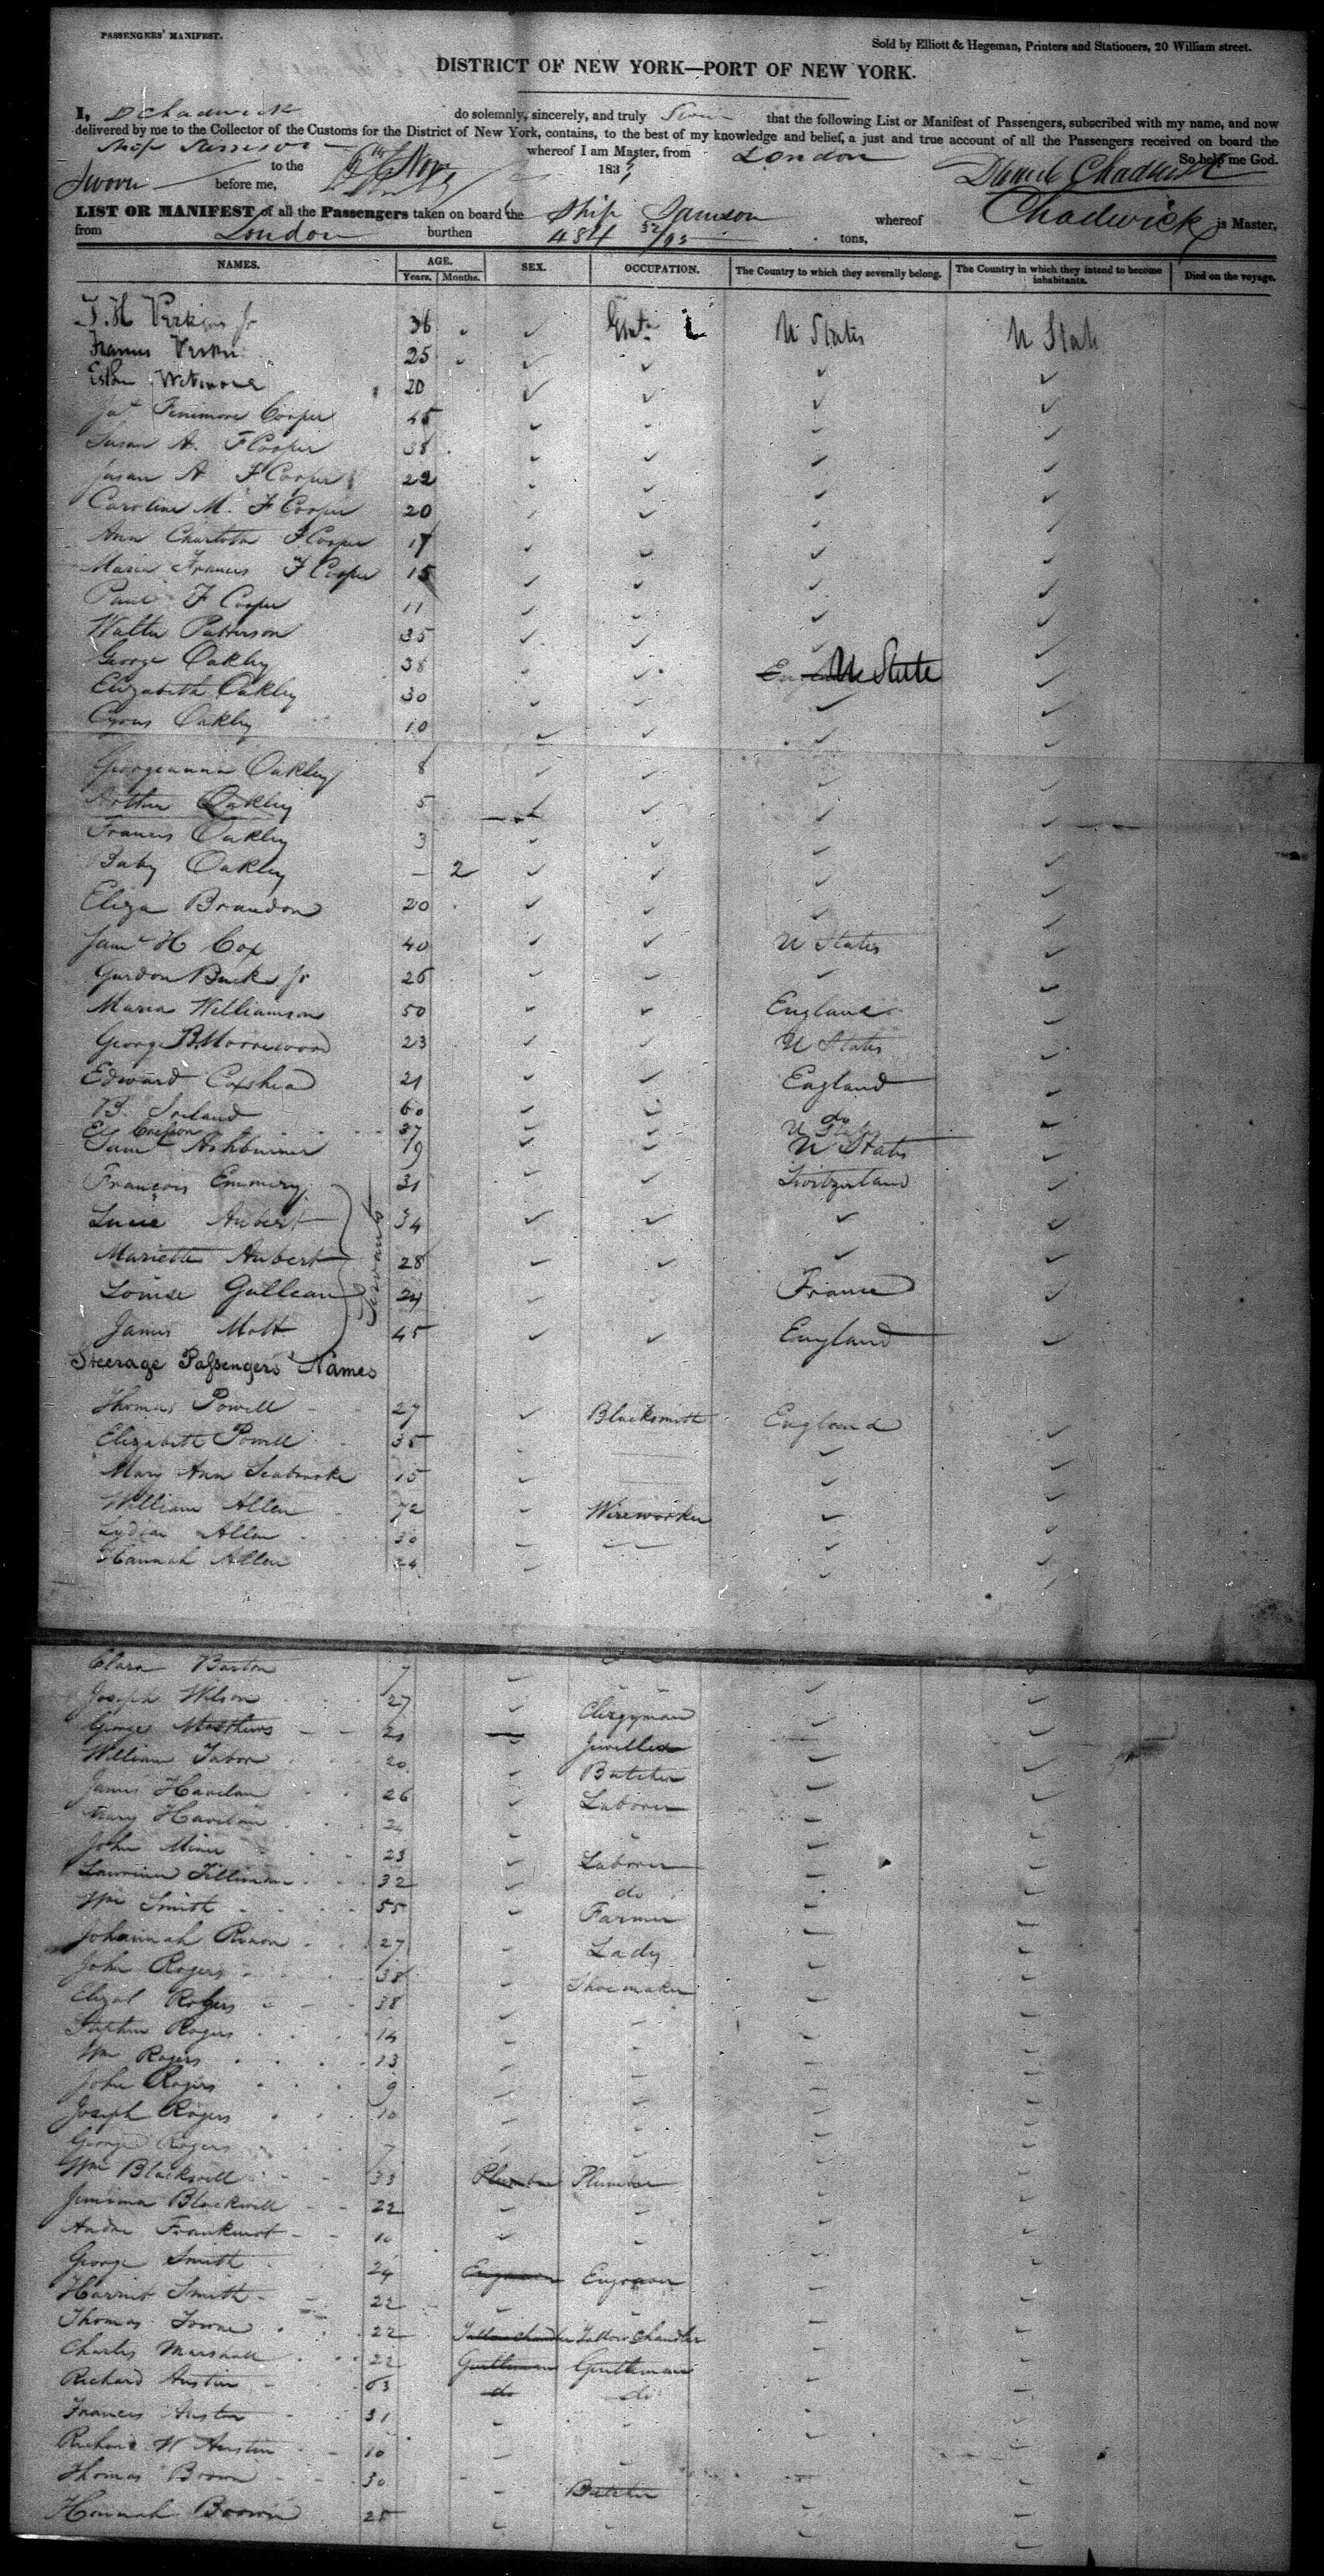 PASSENGERS' MANIFEST.
Sold by Elliott & Hegeman, Printers and Stationers, 20 William street.
DISTRICT OF NEW YORK—PORT OF NEW YORK.
I, D Chadwick do solemnly, sincerely, and truly that the following List or Manifest of Passengers, subscribed with my name, and now
delivered by me to the Collector of the Customs for the District of New York, contains, to the best of my knowledge and belief, a just and true account of all the Passengers received on board the
Ship Samson whereof I am Master, from London So help me God.
Sworn to the 6th Nov 183 Daniel Chadwick
before me,
LIST OR MANIFEST of all the Passengers taken on board the Ship Samson whereof Chadwick is Master,
from London burthen 484 tons,
NAMES. AGE. Years. Months. SEX. OCCUPATION. The Country to which they severally belong. The Country in which they intend to become inhabitants. Died on the voyage.
T. H Perkins Jr 36 U States U States
Frances Perkins 25
Esther Wetmore 20
Jas Fenimore Cooper 45
Susan A. F Cooper 38
Susan A F Cooper 22
Caroline M. F Cooper 20
Ann Charlotte F Cooper 17
Maria Frances F Cooper 15
Paul F Cooper 11
Walter Patterson 35
George Oakley 38 U State
Elizabeth Oakley 30
Cyrus Oakley 10
Georgeanna Oakley 8
Arthur Oakley 5
Francis Oakley 3
Baby Oakley — 2
Eliza Brandon 20
Jams H Cox 40 U States
Gurdon Buck Jr 26
Maria Williamson 50 England
George B Morewood 23 U States
Edward Coxhead 21 England
B. Ireland 60 do
E Cresson 37 U States
Saml Ashburner 19 U States
François Emmery 31 Switzerland
Lucie Aubert 34
Mariette Aubert 28
Servants
Louise Gullean 24 France
James Mott 45 England
Steerage Passengers Names
Thomas Powell 27 Blacksmith England
Elizabeth Powell 35
Mary Ann Seabrooke 15
William Allen 72 Wireworker
Lydia Allen 30
Hannah Allen 24
Clara Barton 7
Joseph Wilson 27 Clergyman
George Matthews 21 Jeweller
William Tabor 20 Butcher
James Havilan 26 Laborer
Mary Havilan 24
John Miner 23 Laborer
Lawrence Tilliman 32 do
Wm Smith 55 Farmer
Johannah Rixon 27 Lady
John Rogers 38 Shoemaker
Elizat Rogers 38
Stephen Rogers 14
Wm Rogers 13
John Rogers 9
Joseph Rogers 10
George Rogers 7
Wm Blackwell 33 Plumber Plumber
Jemima Blackwell 22
Andre Frankmot 10
George Smith 24 Engraver Engraver
Harriet Smith 22
Thomas Towne 22 Tallow Chandler Tallow Chandler
Charles Marshall 22 Gentleman Gentleman
Richard Austin 63 do do
Frances Austin 31
Richard W Austin 10
Thomas Brown 30 Butcher
Hannah Brown 25